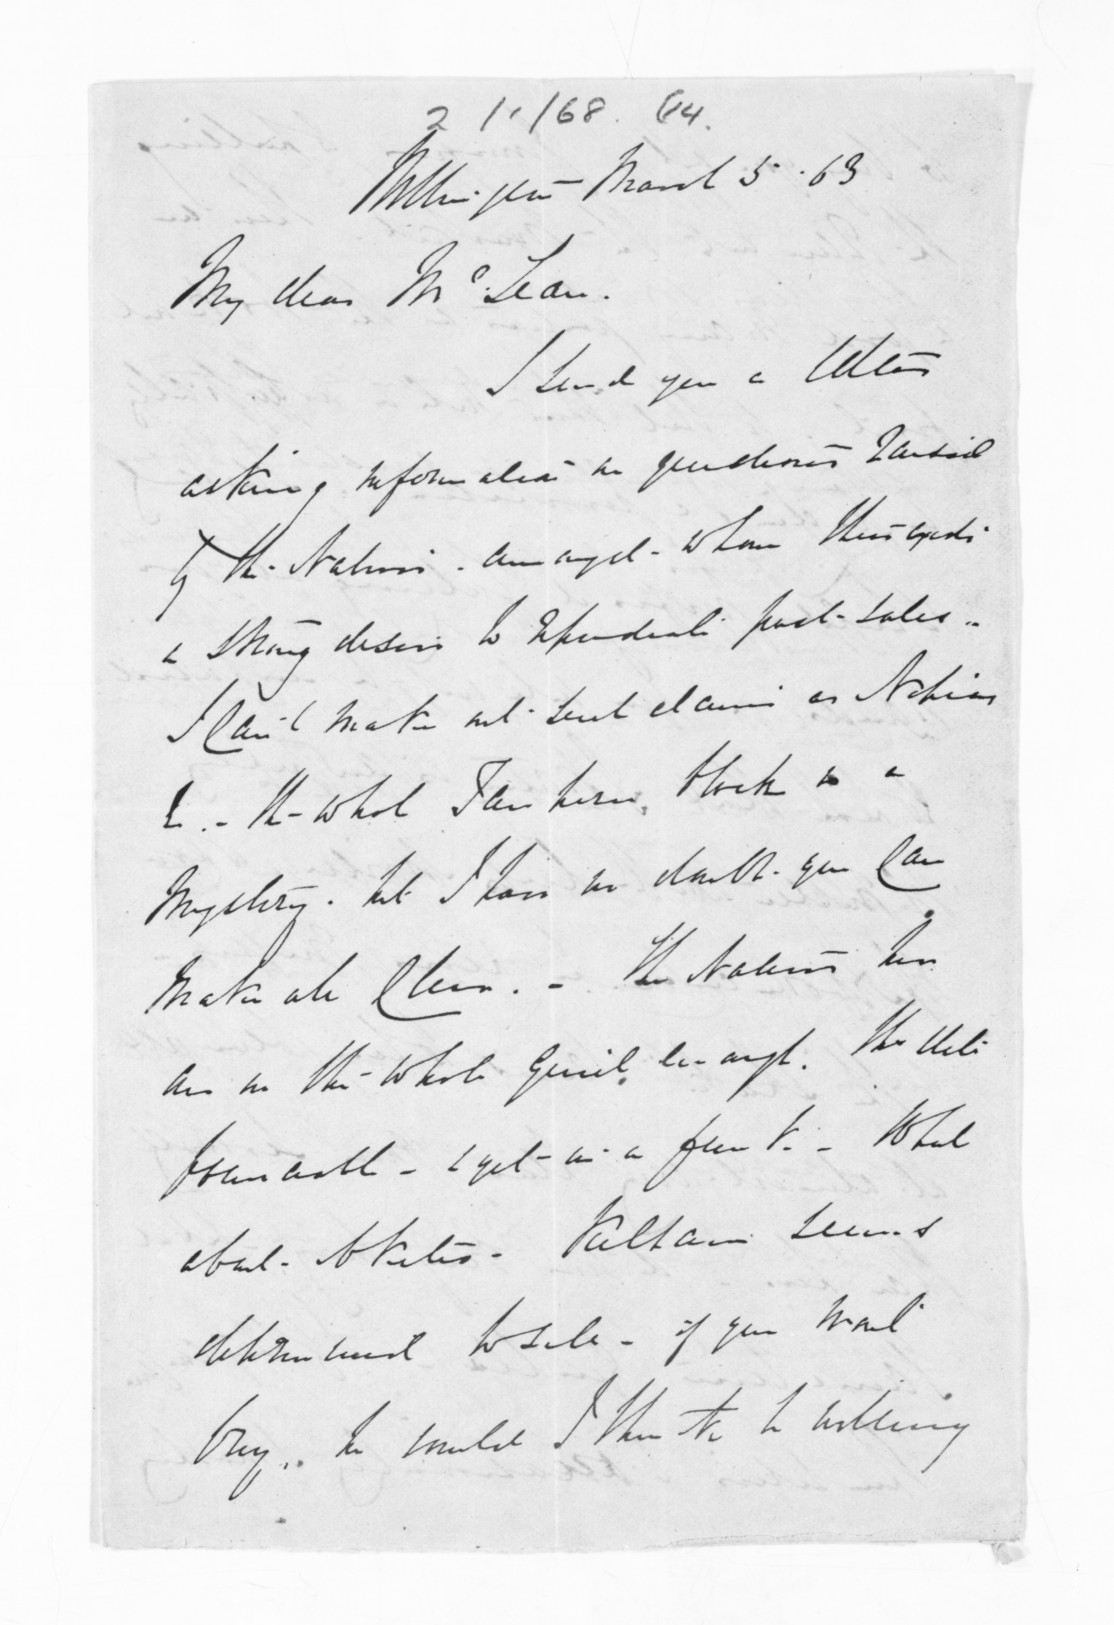 2/1/68. 64.
Wellington March 5. 63
My dear McLean.
I send you a letter
asking information on questions raised
by the Natives. amongst whom there exists
a strong desire to repudiate past sales..
I can't make out such claims as
&c. - the whole block is a
mystery. but I have no doubt you can
make all clear. - The Natives here
are on the whole quiet enough. The
get in a funk. - What
about seems
determined to sell - if you want
buy.. he would I think be willing